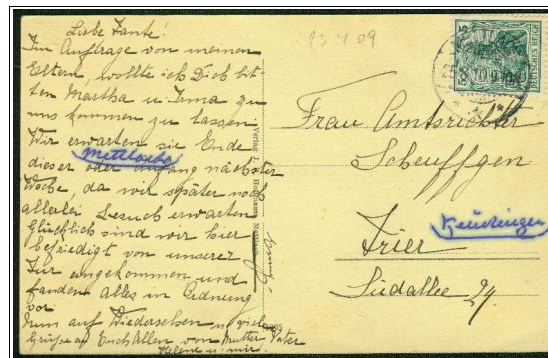 Liebe Tante!
Im Auftrage von meinen
Eltern, wollte ich Dich bit-
ten Martha u. Irma zu
uns kommen zu lassen
Wir erwarten sie Ende
dieser oder Anfang nächster
Woche, da wir später noch
allerlei Besuch erwarten
Glücklich sind wir hier
befriedigt von unserer
Tur angekommen und
fanden alles in Ordnung
vor
Nun auf Wiedersehen u. viele
Grüße an Euch Allen von Mutter, Vater
Helene u. mir.
Mettlach
Verlag J.
23 4 09
DEUTSCHES REICH
Frau Amtsrichter
Scheuffgen
Trier
Südallee 24